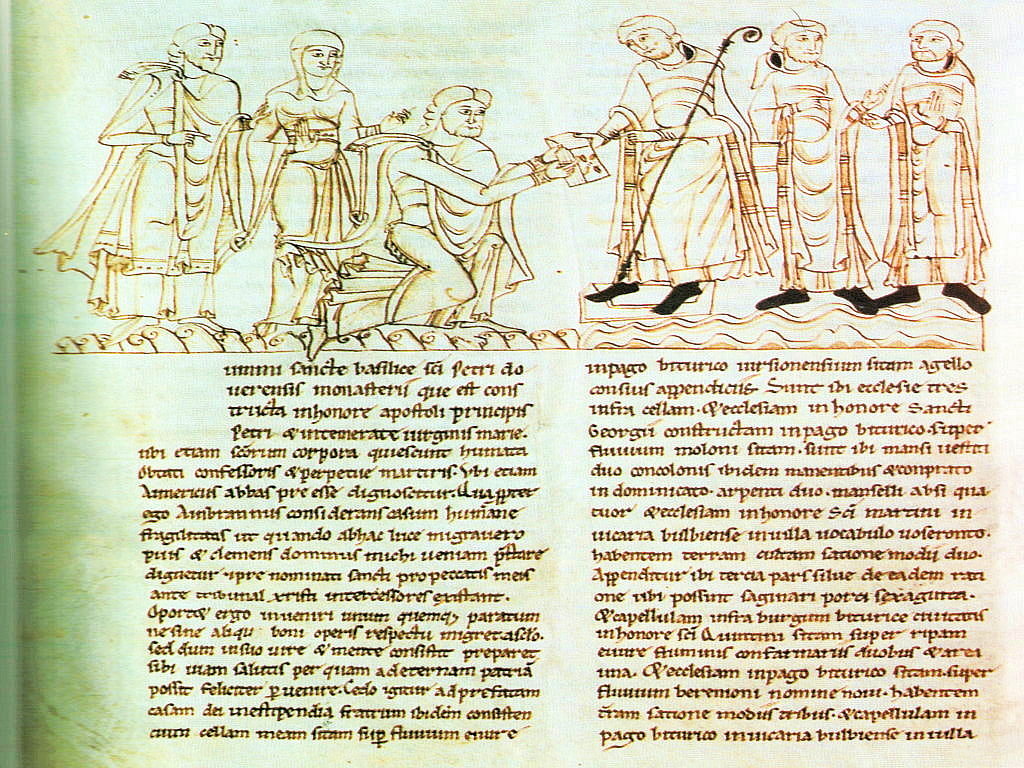 simmi sancte basilice sci petri do
verensis monasterii que est cons
tructa inhonore apostoli principis
petri & intemerate virginis marie.
ubi etiam seorum corpora quiescunt humata
obtati confessoris & perpetue martiris. Ubi etiam
Aimericus abbas pre esse dignoscitur.
ego Ambrannus considerans casum humane
fragilitatis ut quando abhac luce migravero
pius & clemens dominus michi veniam
dignetur. ipre nominati sancti propeccatis meis
ante tribunal xristi intercessores existant.
Oport& ergo inveniri unum quemq; paratum
nesine aliqu boni operis respectu migret aseclo.
sed dum insuo iure & mente consistit preparet
sibi viam salutis per quam adeternam patriā
possit feliciter pvenire. Cedo igitur adprefatam
casam dei instipendia fratrum ibidem consisten
cium cellam meam sitam sup fluvium
inpago biturico virsionensium sitam agello
consius appendiciis. Sunt ibi ecclesie tres
infra cellam. & ecclesiam inhonore Sancti
Georgii constructam inpago biturico. super
fluvium moloni sitam. sunt ibi mansi vestiti
duo concolonis ibidem manentibus &conprato
in dominicato. arpenti duo. manselli absi qua
tuor &ecclesiam inhonore Sci martini in
vicaria bulbiense invilla vocabulo voseronto.
habentem terram cultam satione modii duo.
Appenditur ibi tercia pars silve de eadem rati
one ubi possint saginari porci sexaginta.
&capellulam infra burgum biturice civitatis
inhonore sci Quintini sitam super ripam
evire fluminis confarinariis duobus &arei
una. &ecclesiam inpago biturico sitam. super
fluvium bereniom nomine novi. habentem
tram satione modiis tribus. &capellulam in
pago biturico invicaria bulbiense in villa